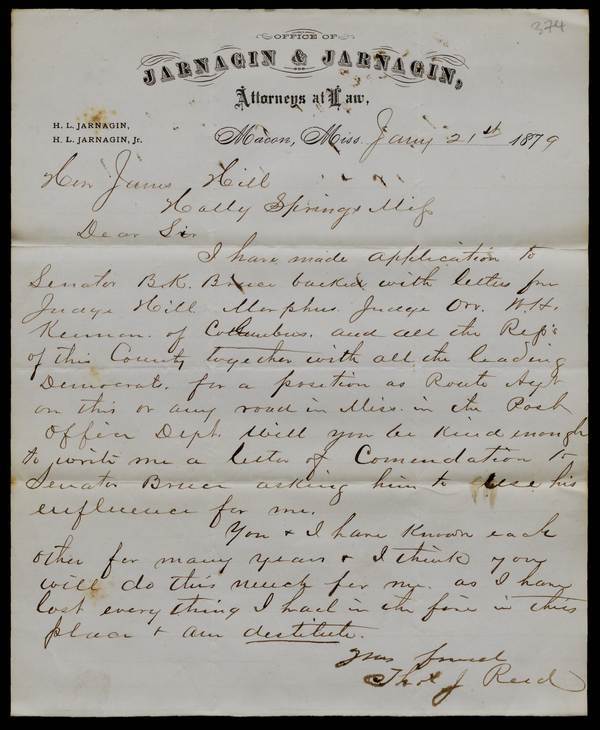 374
OFFICE OF
JARNAGIN & JARNAGIN,
Attorneys at Law,
H. L. JARNAGIN,
H. L. JARNAGIN, Jr.
Macon, Miss. Jany 21st 1879
Hon James Hill
Holly Springs Miss
Dear Sir
I have made application to
Senator B.K. Bruce backed with letters from
Judge Hill Morphus Judge Orr. W.H.
of Columbus. and all the Rep's
of this County together with all the leading
Democrats. for a position as Route Agt
on this or any road in Miss. in the Post
Office Dept. Will you be kind enough
to write me a letter of Comendation to
Senator Bruce asking him to use his
enfluence for me.
You & I have known each
other for many years & I think you
will do this much for me. as I have
lost everything I had in the fire in this
place & am destitute.
Your friend
Thos J. Reed